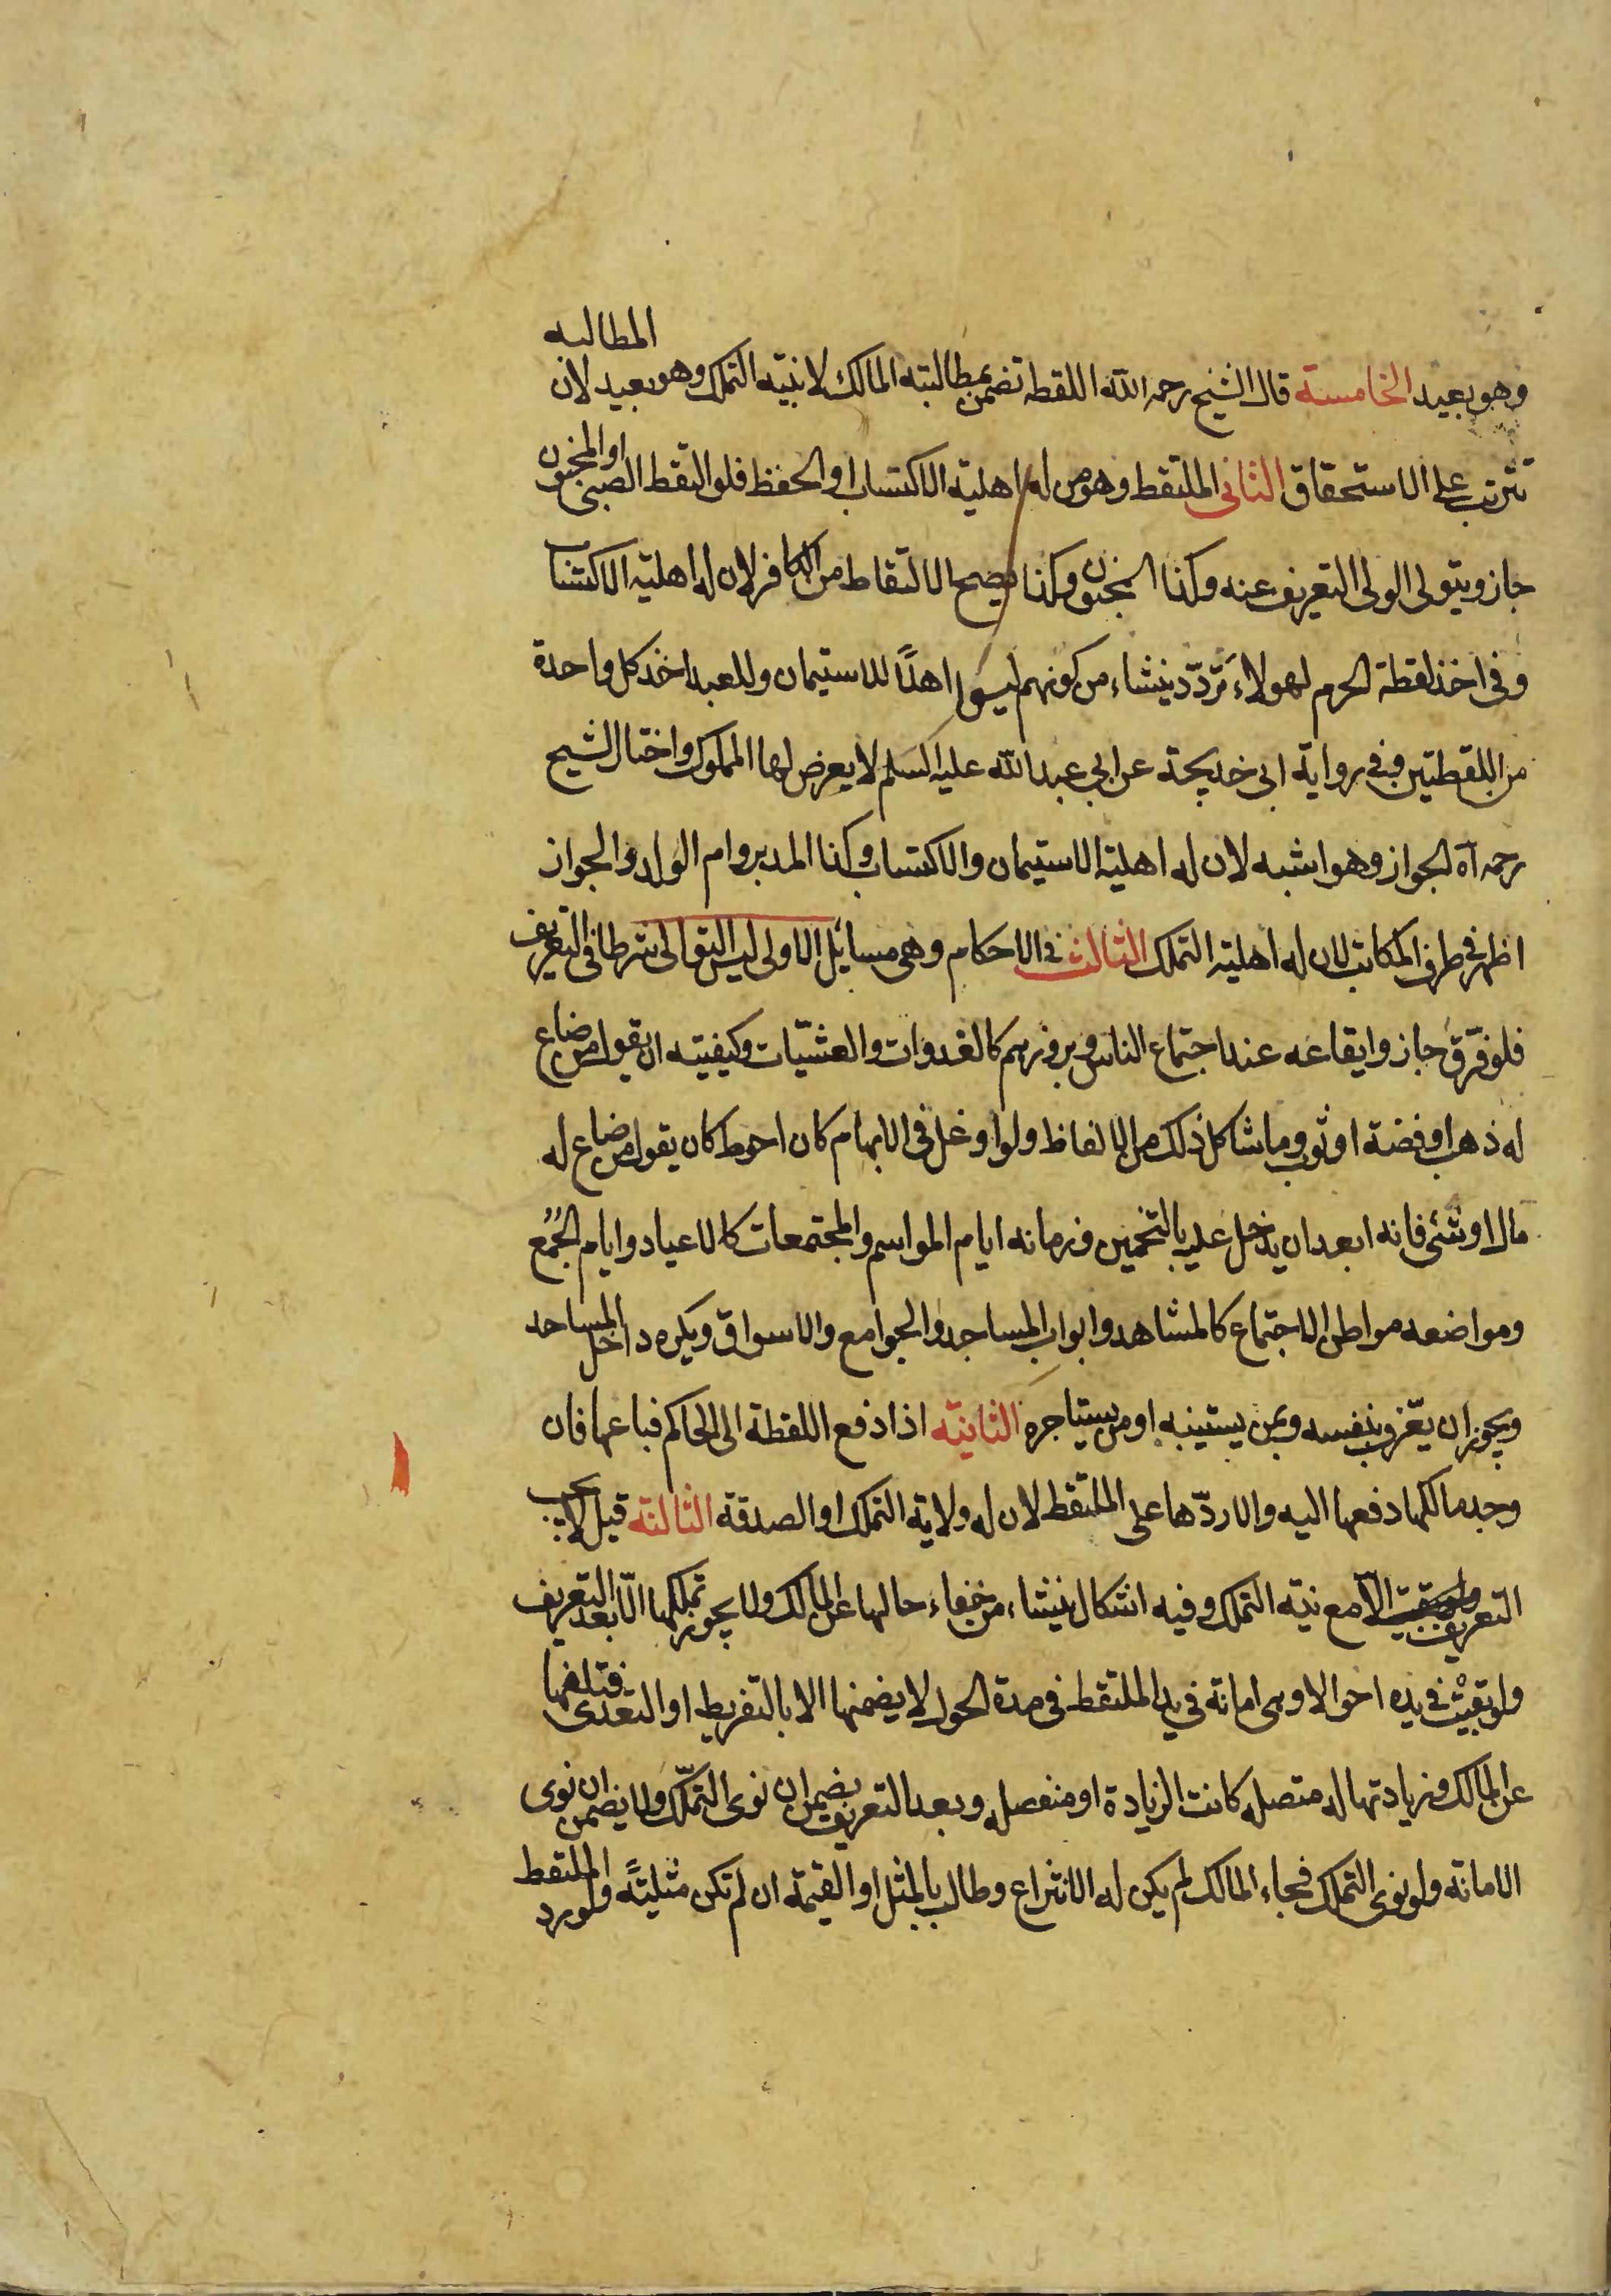 وهو بعيد الخامسة قال الشيخ رحمه الله اللقطه تضمن بمطالبته المالك لا بنيّه التملك وهو بعيد لان المطالبه
تترتب على الاستحقاق الثانى الملتقط وهو من له اهلية الاكتساب او الحفظ فلو التقط الصبى او المجنون
جاز ويتولى الولى التعريف عنه وكذا المجنون وكذا يصح الالتقاط من الكافر لان له اهليه الاكتساب
وفى اخذ لقطة الحرم لهولاء تردّد ينشاء من كونهم ليسوا اهلًا للاستيمان وللعبد اخذ كل واحدة
من اللقطتين وفى رواية ابى خديجة عن ابي عبد الله عليه السلم لا يعرض لها المملوك واختار الشيخ
رحمه اه الجواز وهو اشبه لان له اهلية الاستيمان والاكتساب وكذا المدبر وام الولد والجواز
اظهر فى طرف المكاتب لان له اهليه التملك الثالث فى الاحكام وهى مسايل الاولى ليس التوالى شرطا فى التعريف
فلو فرّق جاز وايقاعه عند اجتماع الناس وبروزهم كالغدوات والعشيّات وكيفيته ان يقول من ضاع
له ذهب او فضة او ثوب وما شاكل ذلك من الالفاظ ولو اوغل فى الابهام كان احوط كان يقول من ضاع له
مال او شئى فانه ابعد ان يدخل عليه بالتخمين وزمانه ايام المواسم والمجتمعات كالاعياد وايام الجُمُع
ومواضعه مواطن الاجتماع كالمشاهد وابواب المساجد والجوامع والاسواق ويكره داخل المساجد
ويجوز ان يعّرف بنفسه وبمن يستنيبه او من يستياجره الثانيّه اذا دفع اللقطة الى الحاكم فباعها فان
وجد مالكها دفعها اليه والا ردّها على الملتقط لان له ولاية التملك او الصدقة الثالثة قيل لا يجب
التعريف الا مع نيّه التملك وفيه اشكال ينشاء من خفاء حالها عن المالك ولا يجوز تملكها الّا بعد التعريف
ولو بقيت فى يده احوالا وهى امانة فى يد الملتقط فى مدة الحول لا يضمنها الا بالتفريط او التعدى فتلفها
عن المالك وزيادتها له متصله كانت الزيادة او منفصله وبعد التعريف يضمن ان نوى التملّك ولا يضمن ان نوى
الامانه ولو نوى التملك فجاء المالك لم يكن له الانتزاع وطالب بالمثل او القيمة ان لم تكن مثليّه ولو رد الملتقط